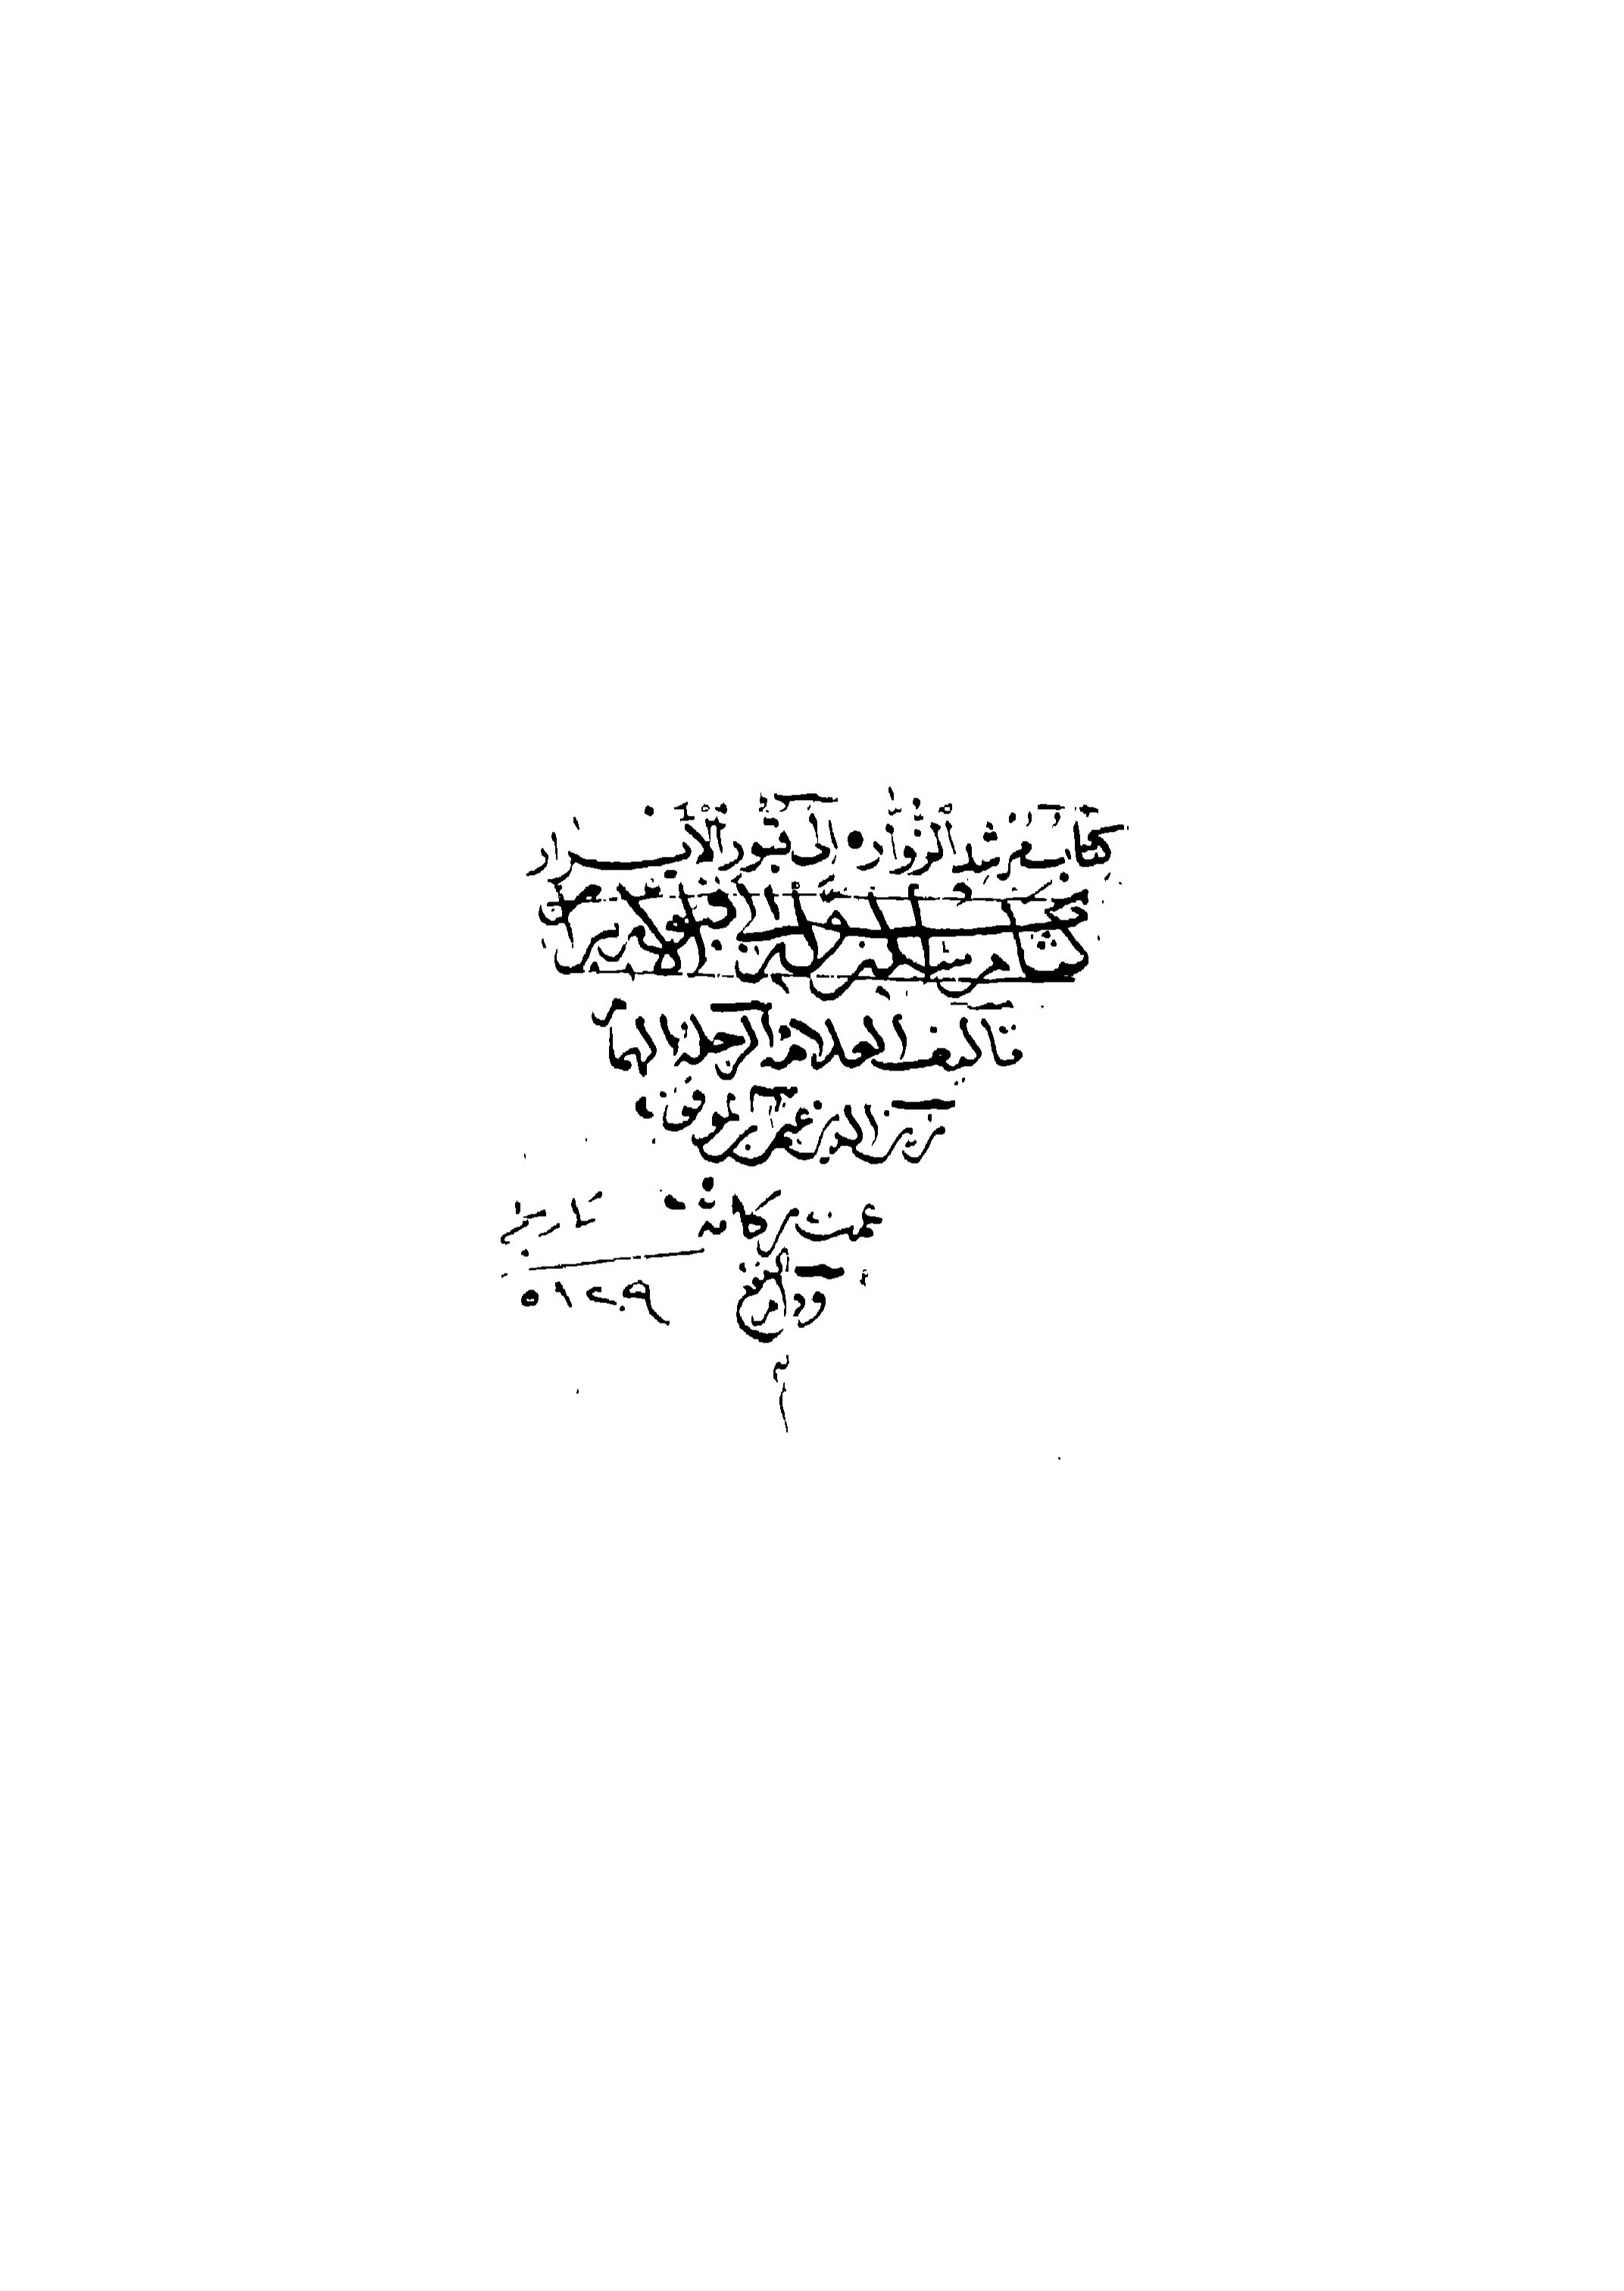 كِتَابُ مُرْشِدِ الزُّوَّارِ إِلَى قُبُورِ الْأَبْرَارِ
كتاب مرشد الزوار الى قبور الابرار
تأليف العلامة الرحلة الهمام
زين الدين عمر بن الموفق
عمت بركاته تاريخ
آمين
٥١٢٠٩
م